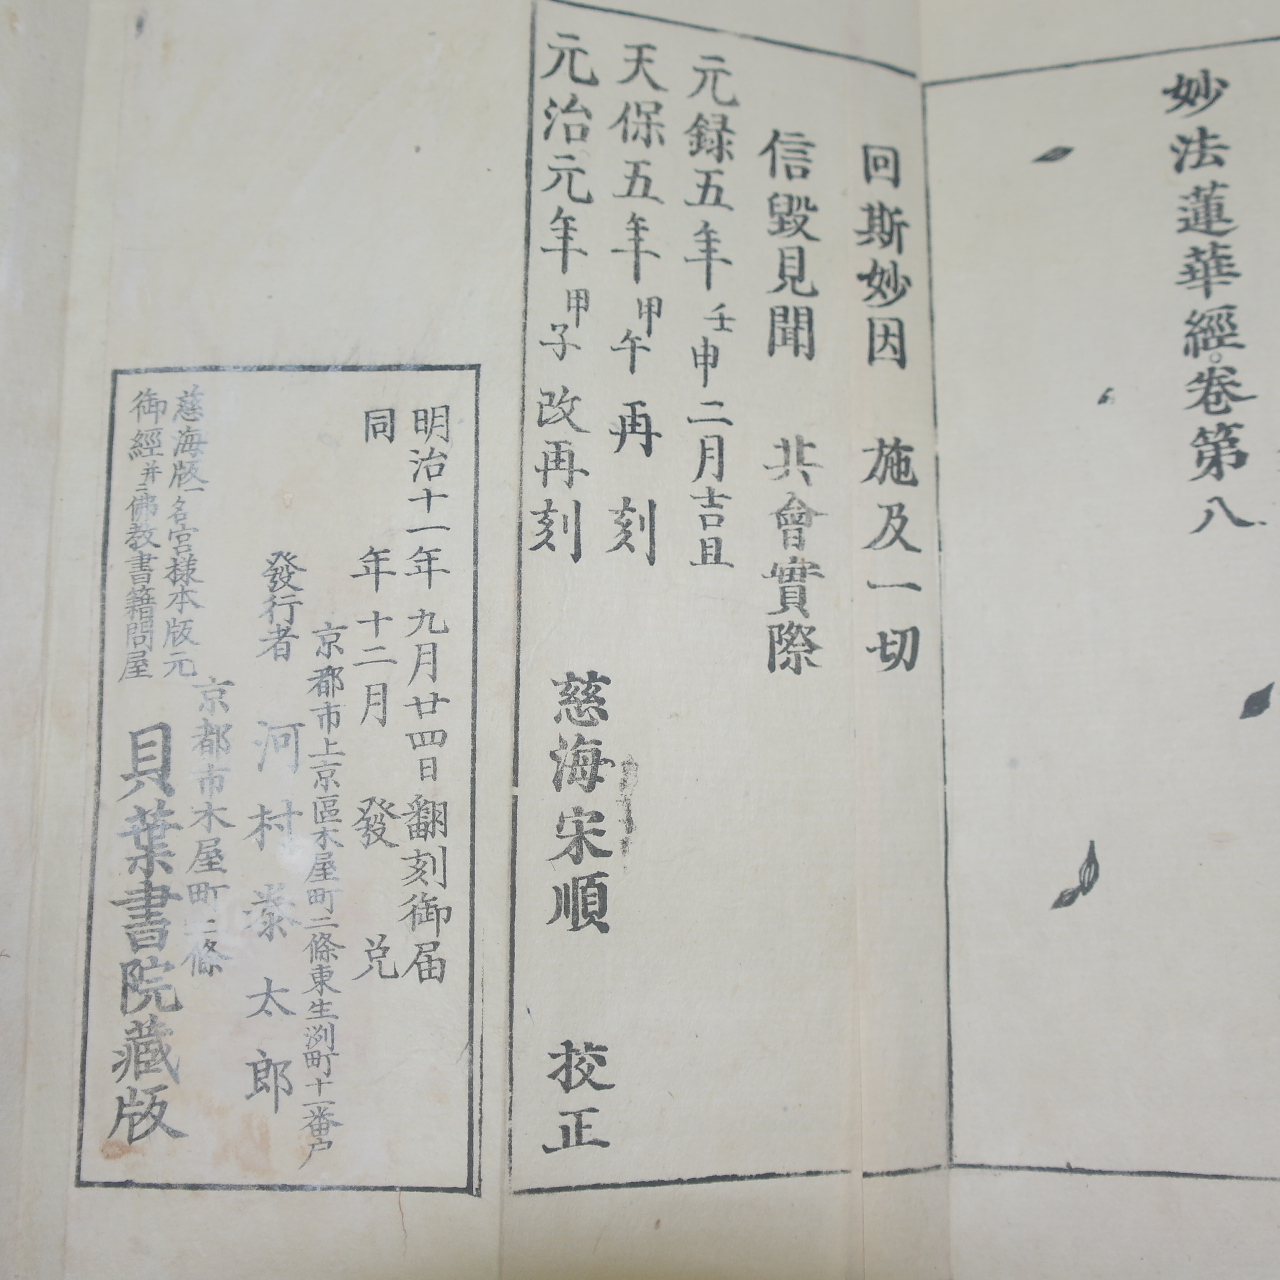 妙法蓮華經卷第八
回斯妙因 施及一切
信毀見聞 共會實際
元録五年壬申二月吉且
天保五年甲午再刻
元治元年甲子改再刻
慈海宋順 挍正
明治十一年九月廿四日翻刻御届
同年十二月發兌
京都市上京區木屋町二條東生洲町十一番戸
發行者 河村泰太郎
慈海版一名宮樣本版元
御經并ニ佛教書籍問屋
京都市木屋町二條
貝葉書院藏版